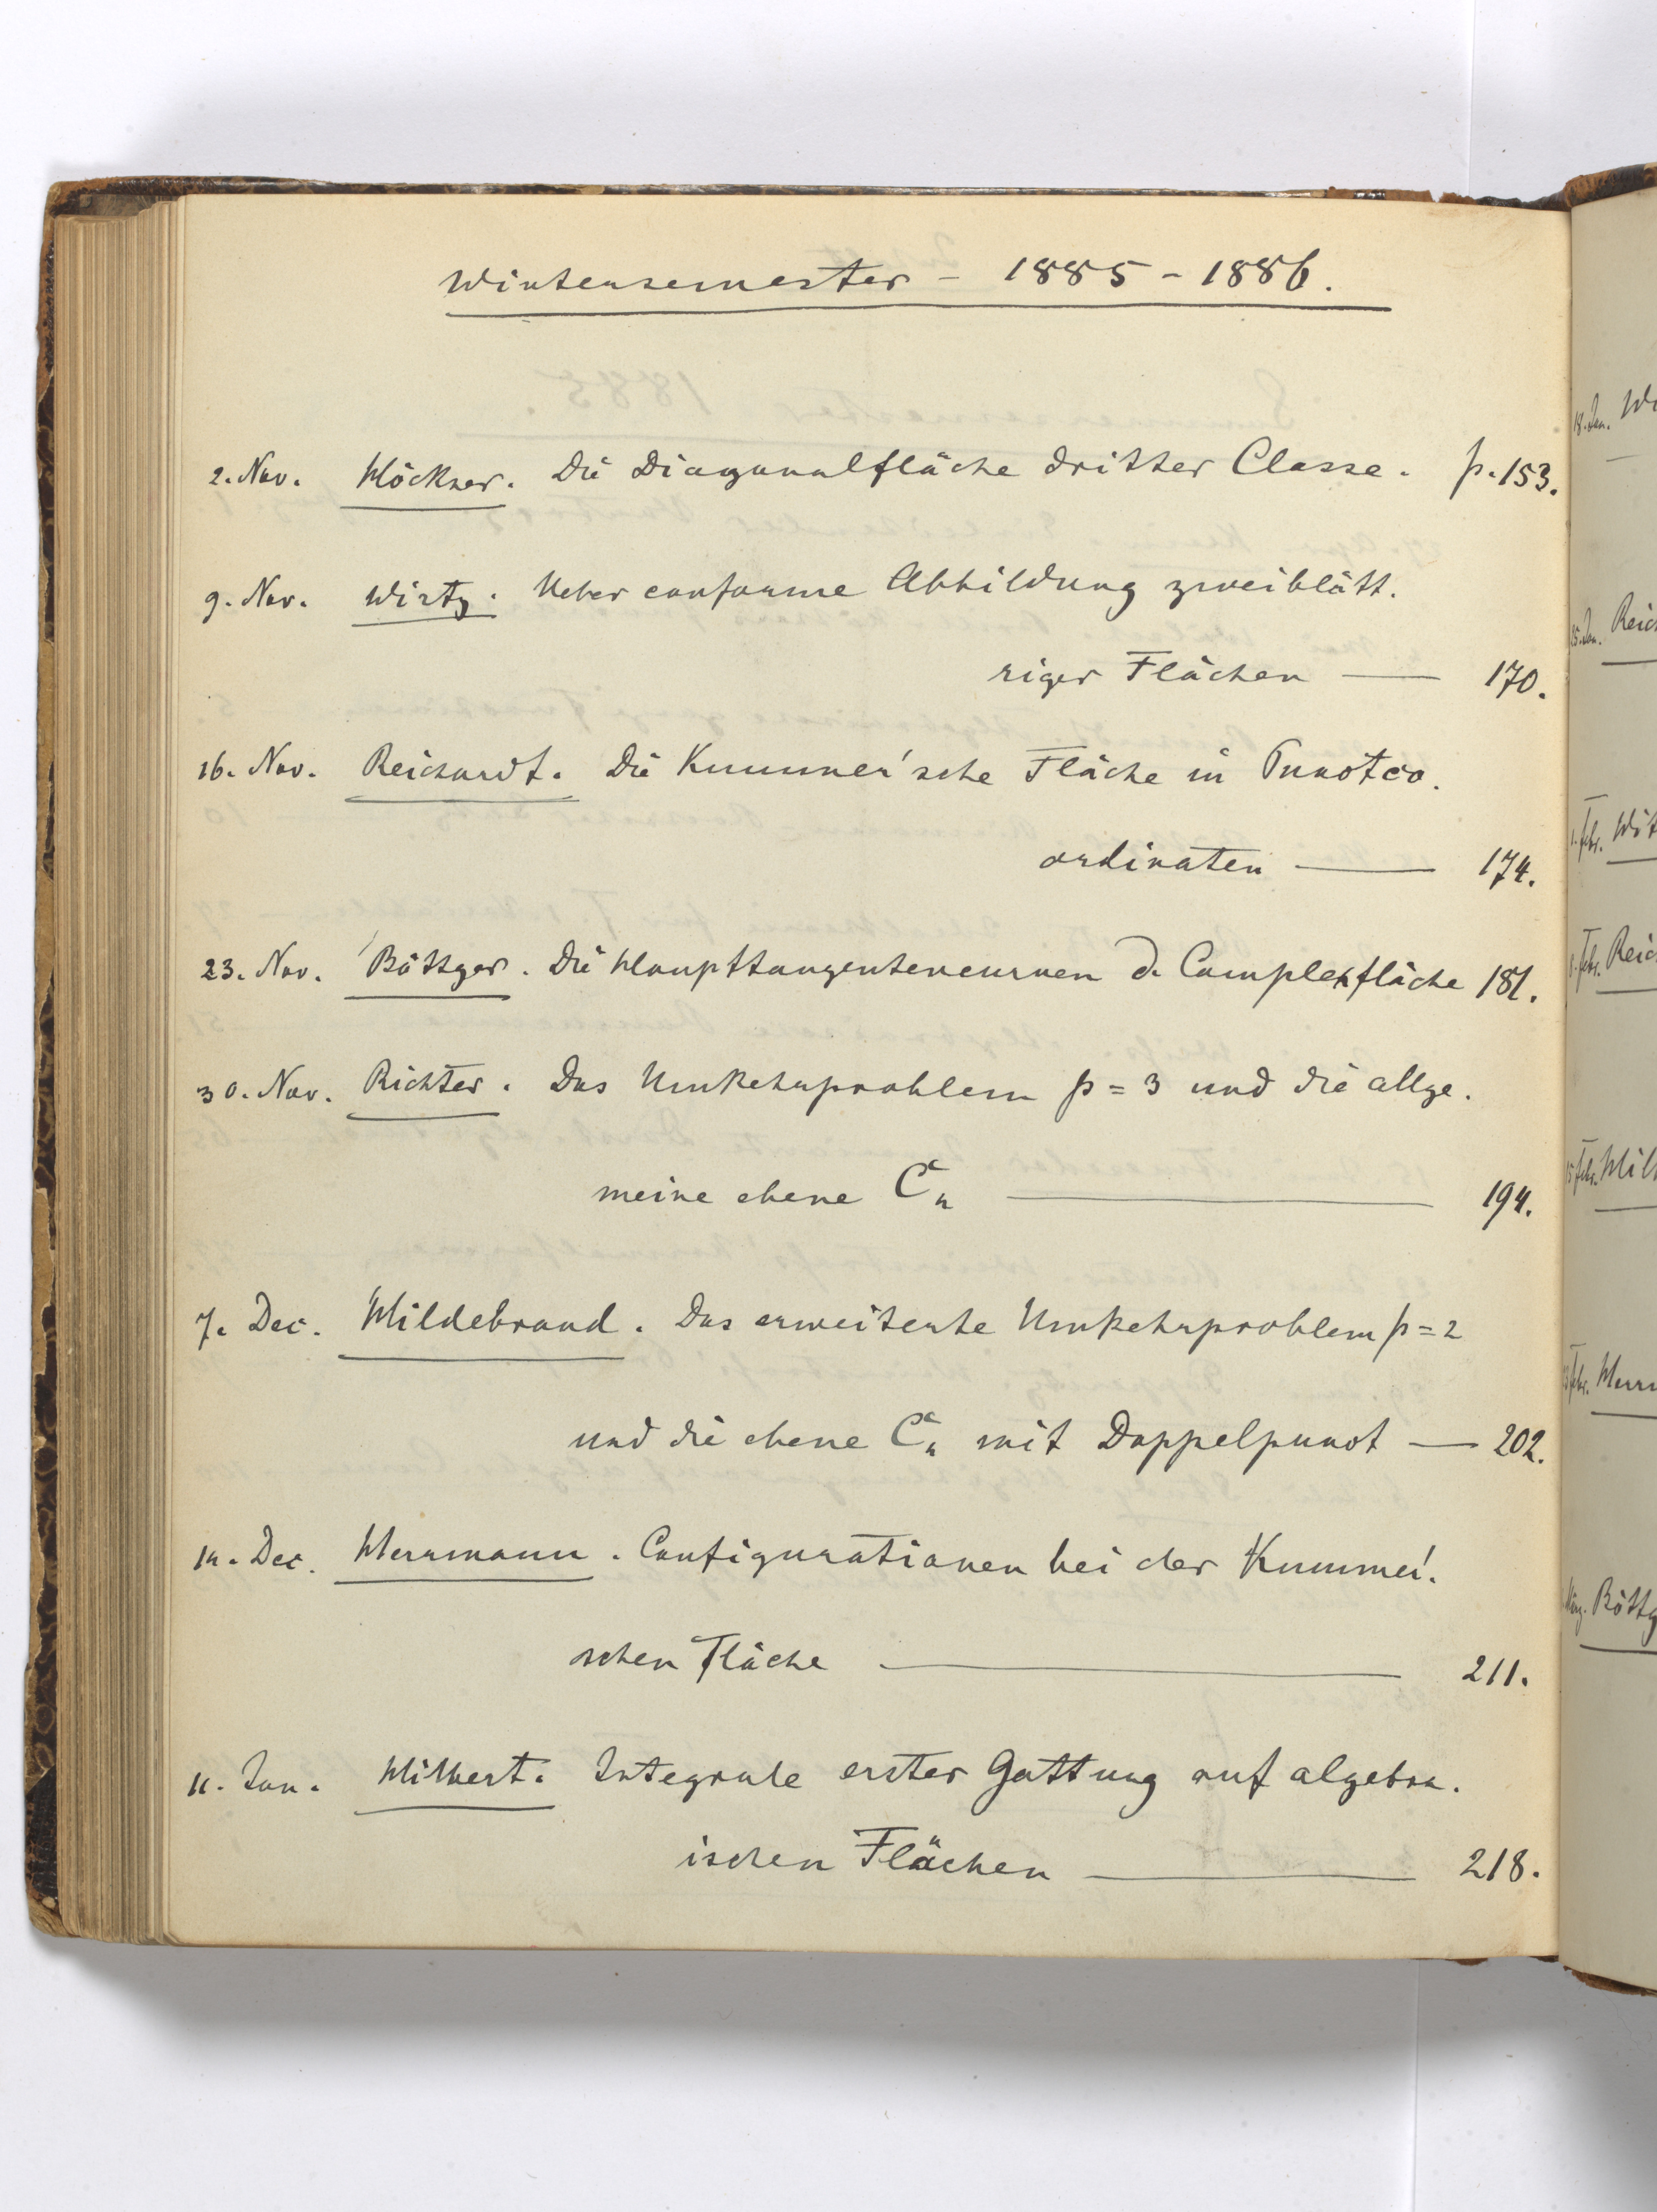 Wintersemester - 1885-1886.
2. Nov. Höckner. Die Diagonalfläche dritter Classe. p. 153.
9. Nov. Wirtz. Ueber conforme Abbildung zweiblätt.
riger Flächen — 170.
16. Nov. Reichardt. Die Kummer'sche Fläche in Punctco.
ordinaten — 174.
23. Nov. Böttger. Die Haupttangentencurven d. Complexfläche 181.
30. Nov. Richter. Das Umkehrproblem p = 3 und die allge.
meine ebene C₄ — 194.
7. Dec. Hildebrand. Das erweiterte Umkehrproblem p = 2
und die ebene C₄ mit Doppelpunct — 202.
14. Dec. Herrmann. Configurationen bei der Kummer'.
schen Fläche — 211.
11. Jan. Hilbert. Integrale erster Gattung auf algebra.
ischen Flächen — 218.